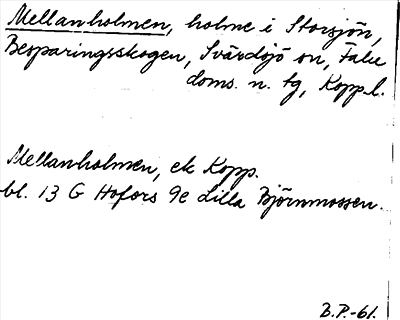 Mellanholmen, holme i Storsjön,
Besparingsskogen, Svärdsjö sn, Falu
doms. n. tg, Kopp.l.
Mellanholmen, ek Kopp.
bl. 13 G Hofors 9e Lilla Björnmossen.
B.P.-61.